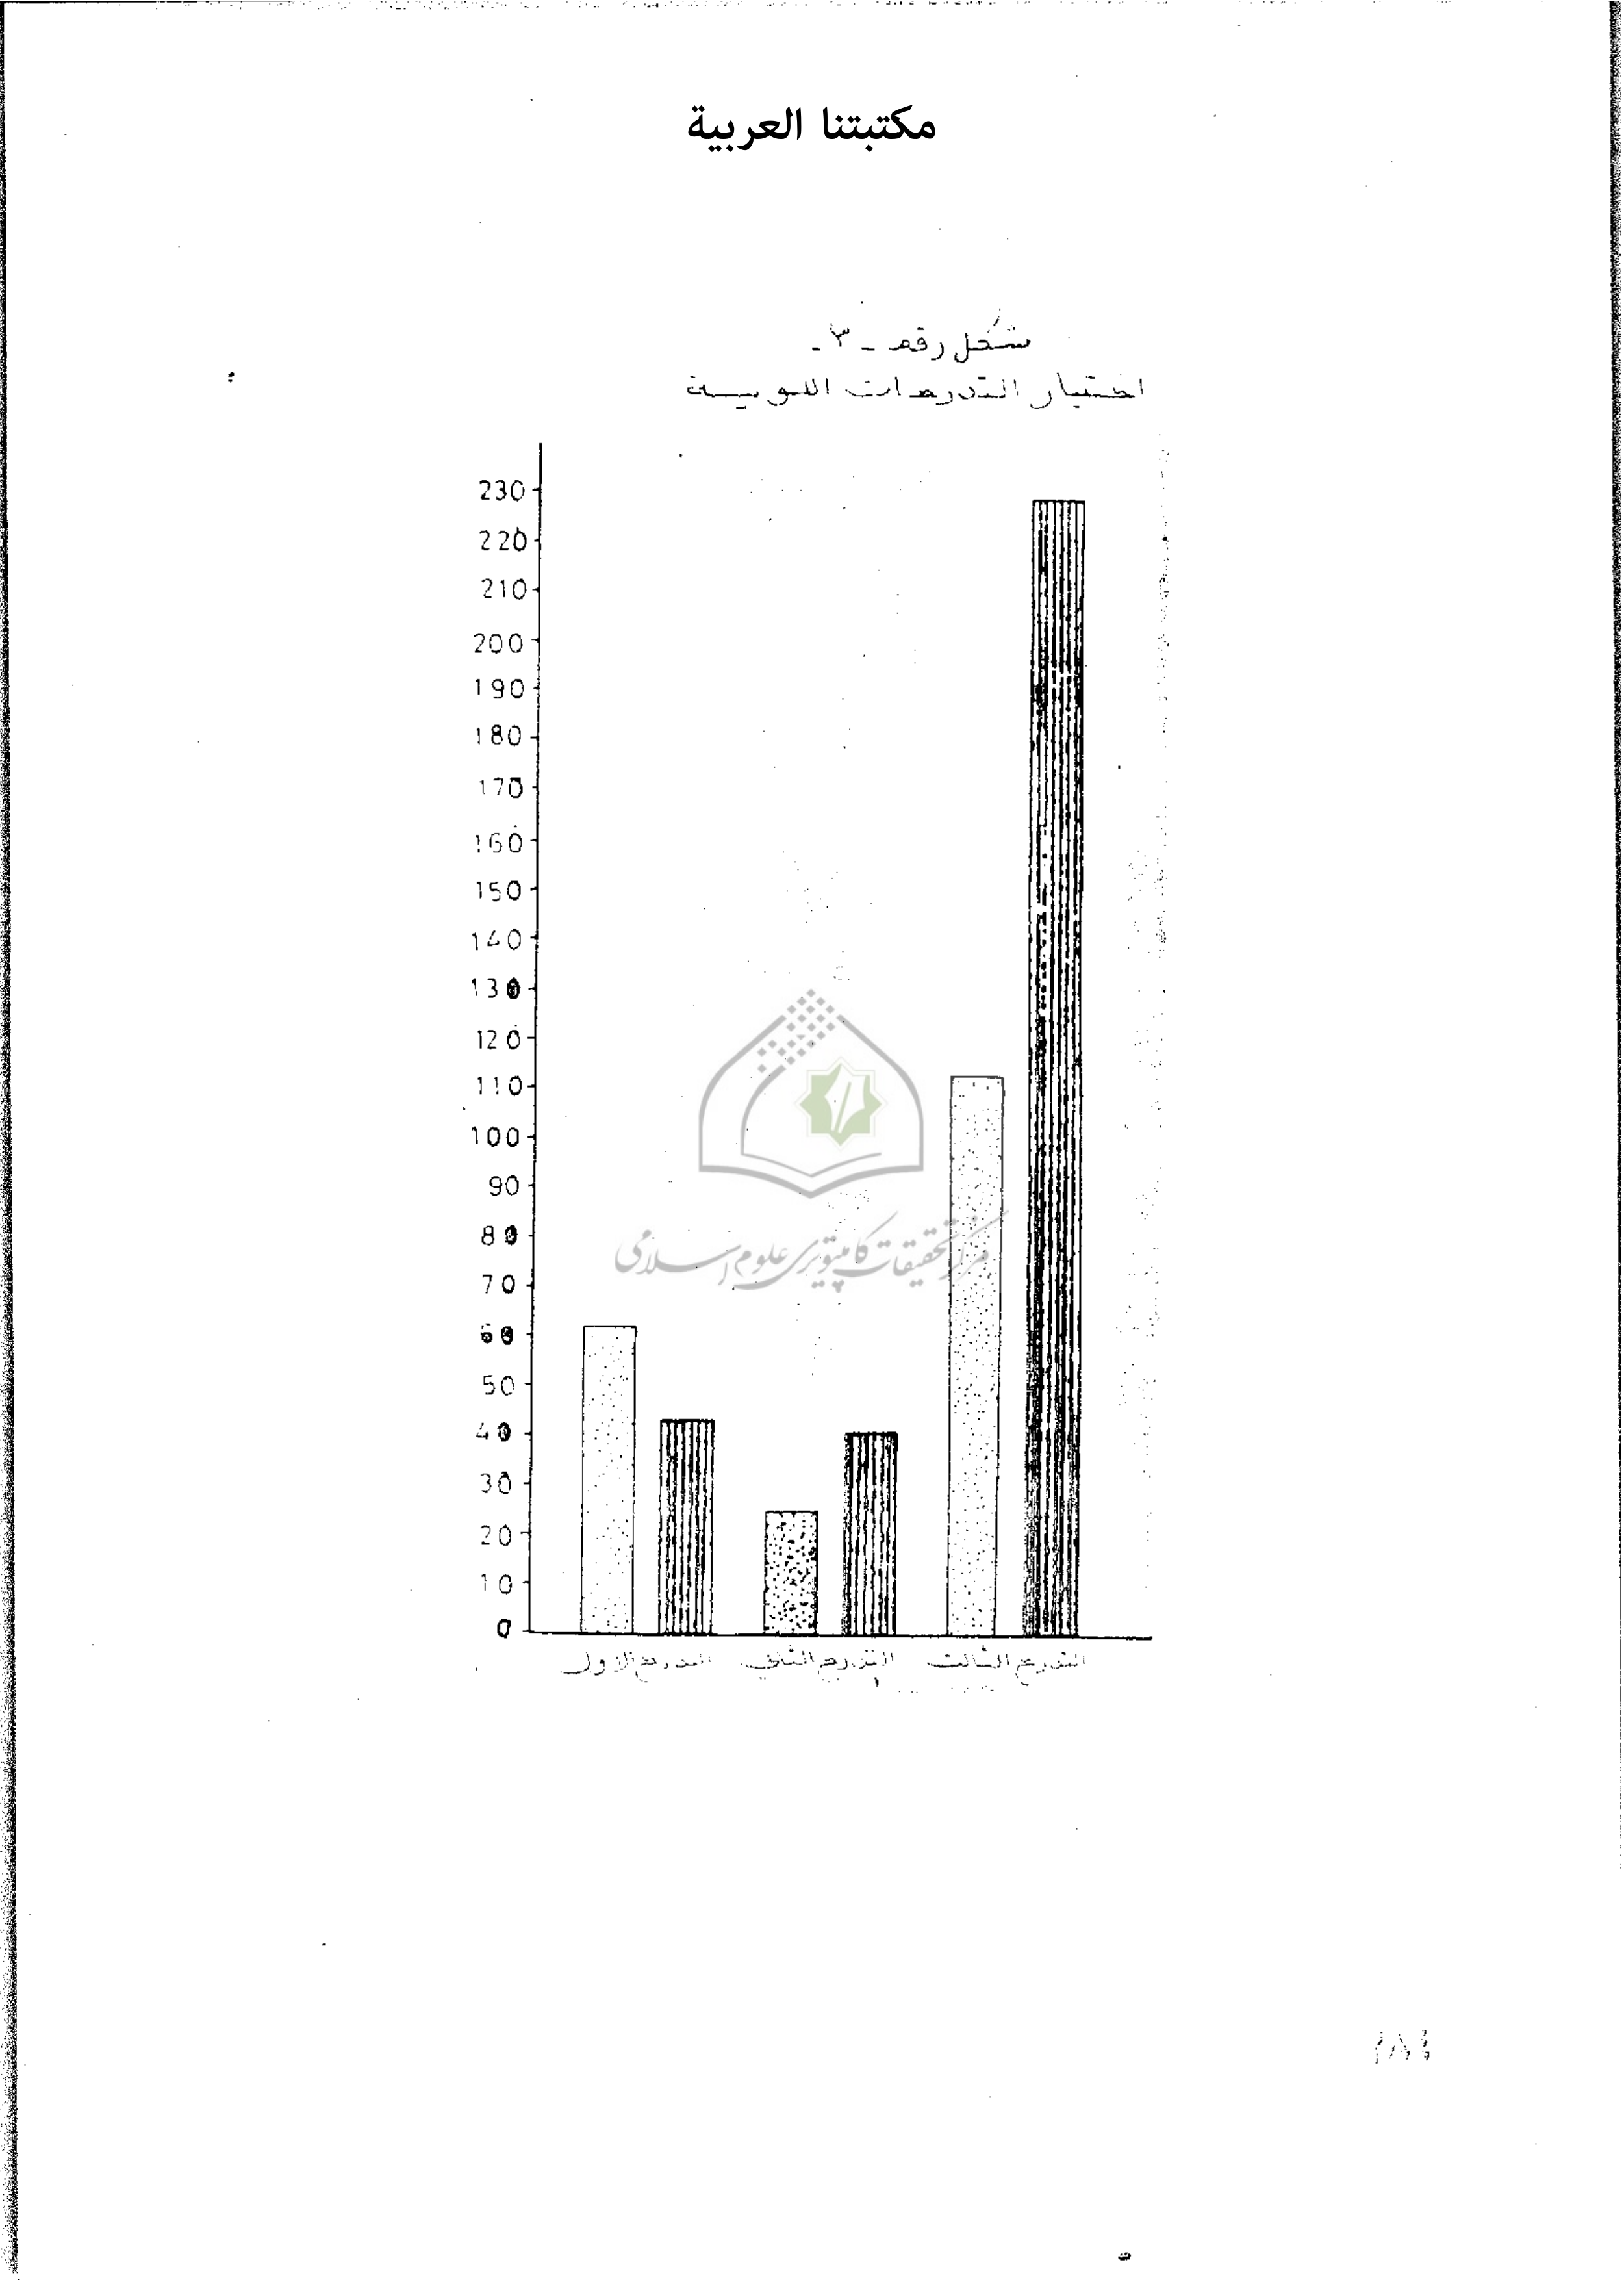 مكتبتنا العربية
شكل رقم - ٣ -
اختبار التدرجات اللونية
230
220
210
200
190
180
170
160
150
140
130
120
110
100
90
80
70
60
50
40
30
20
10
0
التدرج الأول التدرج الثاني التدرج الثالث
مركز تحقيقات كامپيوتری علوم اسلامی